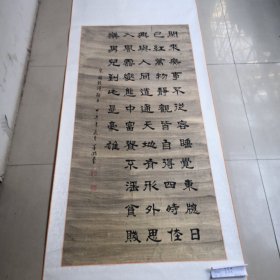 閒來無事不從容睡覺東窗日
已紅萬物靜觀皆自得四時佳
興與人同道通天地有形外思
入風雲變態中富貴不淫貧賤
樂男兒到此是豪雄